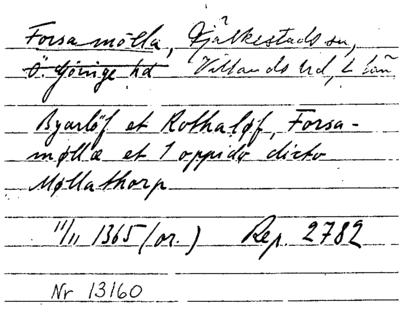 Forsamölla, Fjälkestads sn,
Ö. Göinge hd Villands hd, L län
Byarlöf et Rothalöf, Forsa-
møllæ et 1 oppido dicto
Møllathorp
11/11 1365 (or.) Rep. 2782
Nr 13160